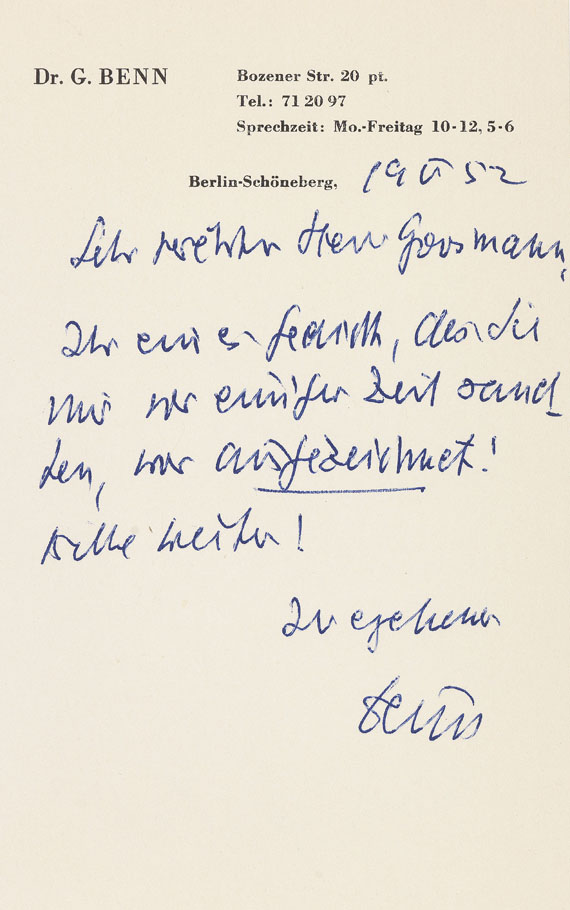 Dr. G. BENN
Bozener Str. 20 pt.
Tel.: 71 20 97
Sprechzeit: Mo.-Freitag 10-12, 5-6
Berlin-Schöneberg, 19 V 52
Sehr verehrter Herr Goosmann,
Ihr Gedicht, das Sie
mir vor einiger Zeit sand
ten, war ausgezeichnet!
Bitte weiter!
Ihr ergebener
Benn